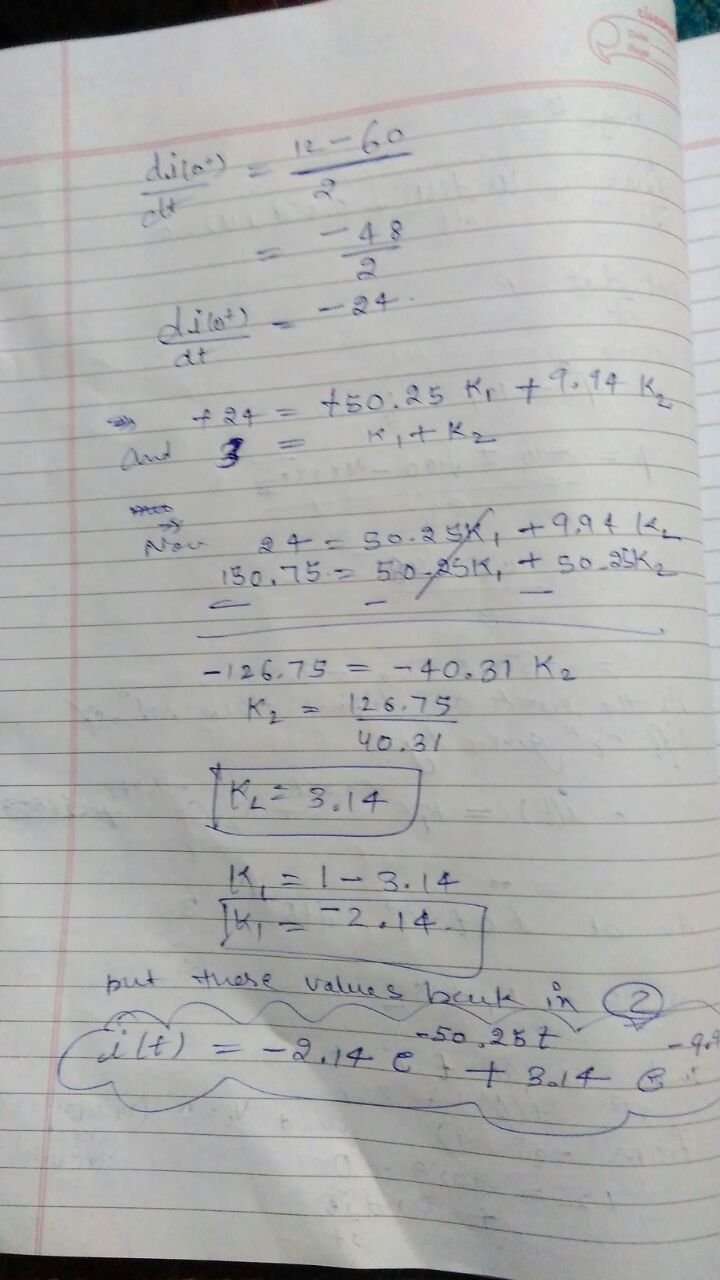 di(0+)/dt = 12 - 60 / 2
= -48 / 2
di(0+)/dt = -24.
⇒ +24 = +50.25 K1 + 9.94 K2
and 3 = K1 + K2
⇒
Now 24 = 50.25K1 + 9.94 K2
150.75 = 50.25K1 + 50.25K2
- - -
-126.75 = -40.31 K2
K2 = 126.75 / 40.31
K2 = 3.14
K1 = 1 - 3.14
K1 = -2.14.
put these values back in 2
i(t) = -2.14 e -50.25t + 3.14 e -9.9